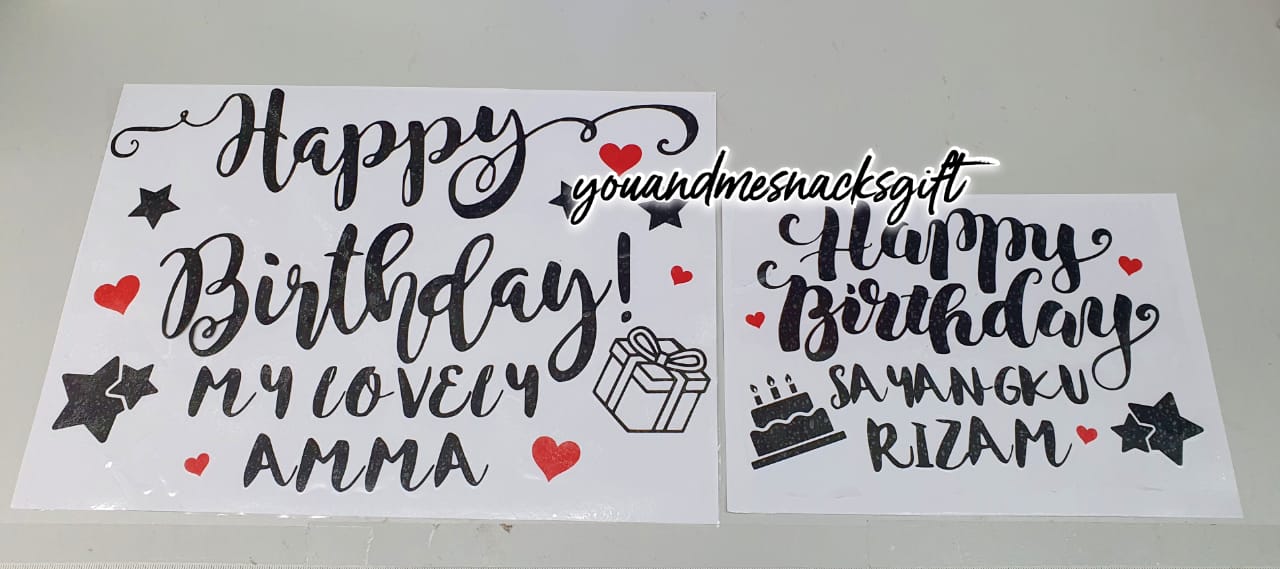 Happy
Birthday!
MY LOVELY
AMMA
youandmesnacksgift
Happy
Birthday
SAYANGKU
RIZAM